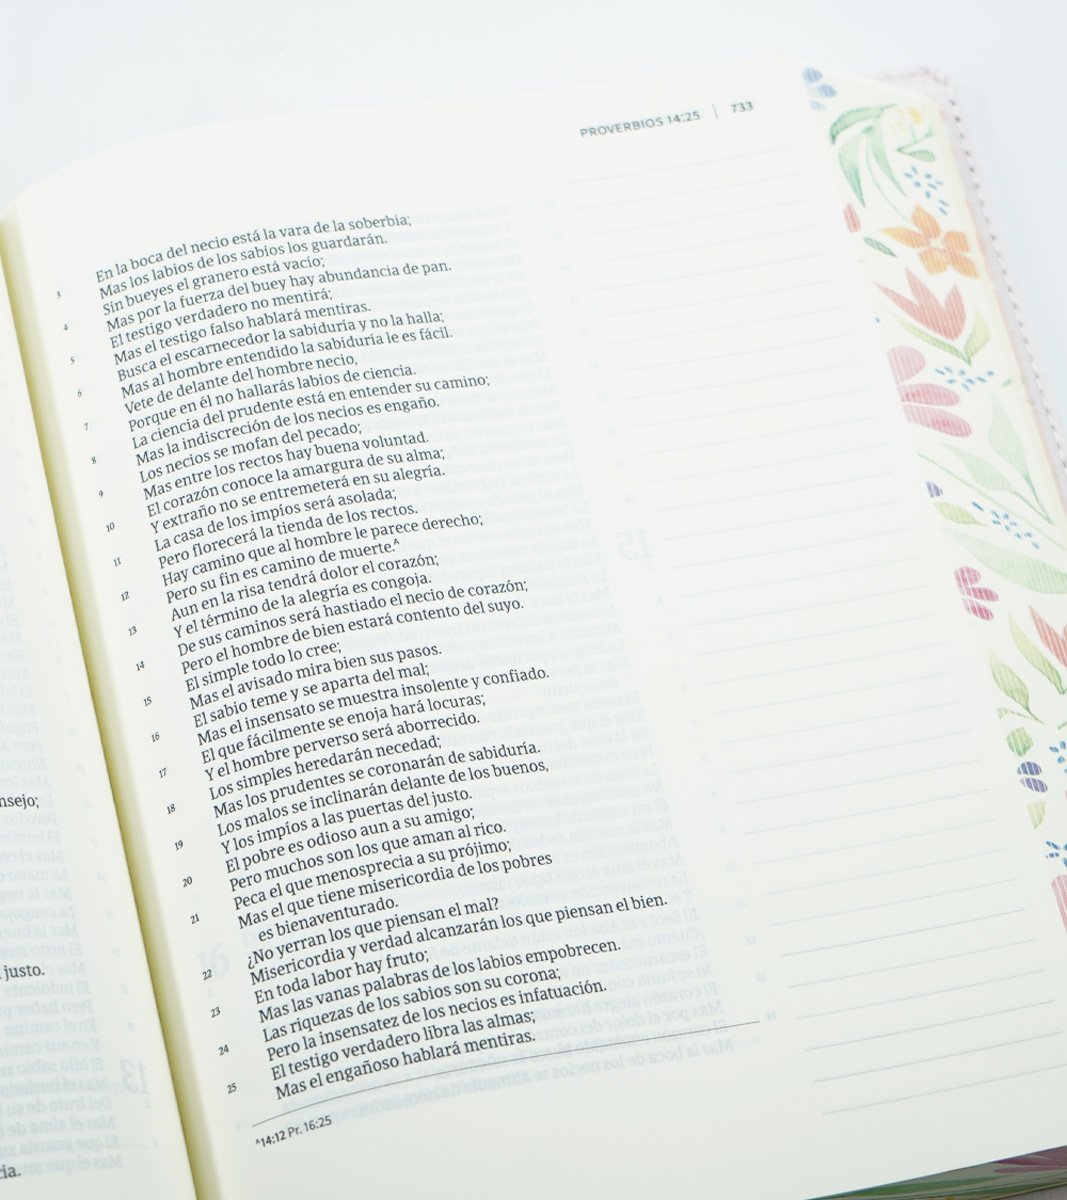 PROVERBIOS 14:25 | 733
3 En la boca del necio está la vara de la soberbia;
Mas los labios de los sabios los guardarán.
4 Sin bueyes el granero está vacío;
Mas por la fuerza del buey hay abundancia de pan.
5 El testigo verdadero no mentirá;
Mas el testigo falso hablará mentiras.
6 Busca el escarnecedor la sabiduría y no la halla;
Mas al hombre entendido la sabiduría le es fácil.
7 Vete de delante del hombre necio,
Porque en él no hallarás labios de ciencia.
8 La ciencia del prudente está en entender su camino;
Mas la indiscreción de los necios es engaño.
9 Los necios se mofan del pecado;
Mas entre los rectos hay buena voluntad.
10 El corazón conoce la amargura de su alma;
Y extraño no se entremeterá en su alegría.
11 La casa de los impíos será asolada;
Pero florecerá la tienda de los rectos.
12 Hay camino que al hombre le parece derecho;
Pero su fin es camino de muerte.ᴬ
13 Aun en la risa tendrá dolor el corazón;
Y el término de la alegría es congoja.
14 De sus caminos será hastiado el necio de corazón;
Pero el hombre de bien estará contento del suyo.
15 El simple todo lo cree;
Mas el avisado mira bien sus pasos.
16 El sabio teme y se aparta del mal;
Mas el insensato se muestra insolente y confiado.
17 El que fácilmente se enoja hará locuras;
Y el hombre perverso será aborrecido.
18 Los simples heredarán necedad;
Mas los prudentes se coronarán de sabiduría.
19 Los malos se inclinarán delante de los buenos,
Y los impíos a las puertas del justo.
20 El pobre es odioso aun a su amigo;
Pero muchos son los que aman al rico.
21 Peca el que menosprecia a su prójimo;
Mas el que tiene misericordia de los pobres
es bienaventurado.
22 ¿No yerran los que piensan el mal?
Misericordia y verdad alcanzarán los que piensan el bien.
23 En toda labor hay fruto;
Mas las vanas palabras de los labios empobrecen.
24 Las riquezas de los sabios son su corona;
Pero la insensatez de los necios es infatuación.
25 El testigo verdadero libra las almas;
Mas el engañoso hablará mentiras.
ᴬ14:12 Pr. 16:25
nsejo;
justo.
ia.